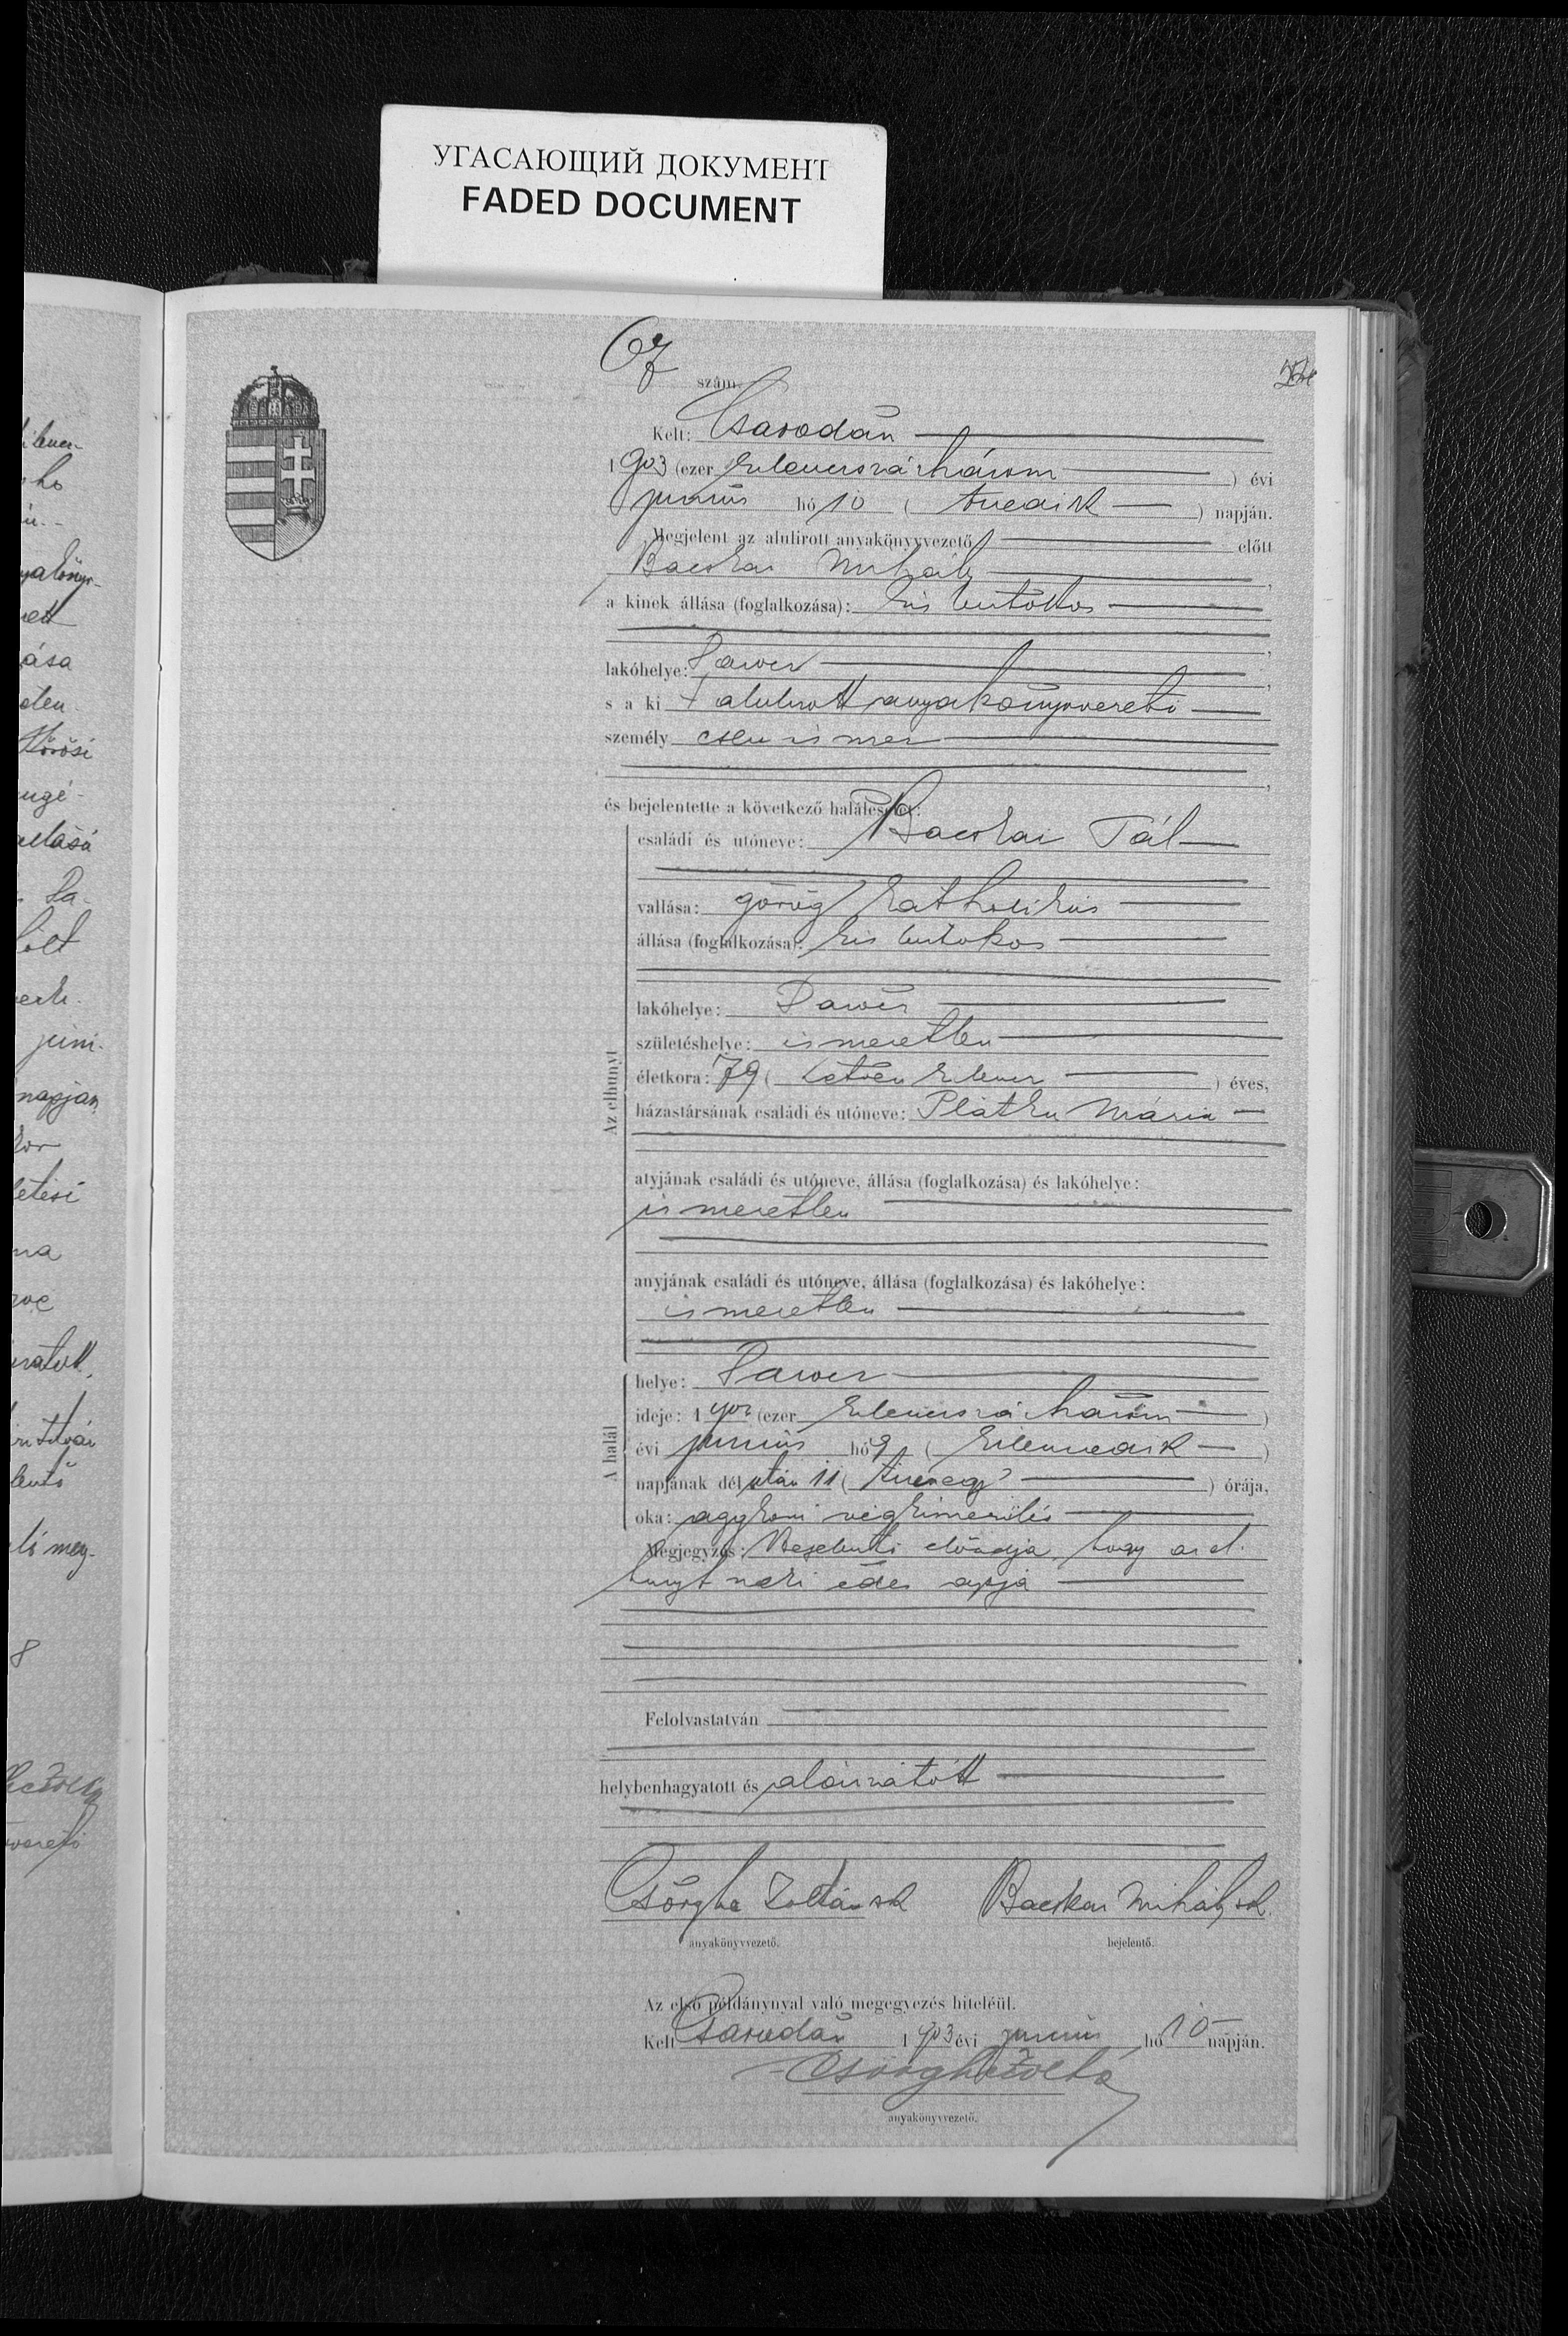 УГАСАЮЩИЙ ДОКУМЕНТ
FADED DOCUMENT
67
szám.
Kelt: Csarodán
1903 (ezer kilenczszázhárom) évi
junius hó 10 (tizedik) napján.
Megjelent az alulirott anyakönyvvezető előtt
Bacskai Mihály,
a kinek állása (foglalkozása): kis birtokos
,
lakóhelye: ,
s a ki t alulirott anyakönyvvezető
személy esen ismer
,
és bejelentette a következő halálesetet:
Az elhunyt
családi és utóneve: Bacskai Pál
vallása: görög katholikus
állása (foglalkozása): kis birtokos
lakóhelye:
születéshelye: ismeretlen
életkora: 79 (hetven kilencz) éves,
házastársának családi és utóneve: Mária
atyjának családi és utóneve, állása (foglalkozása) és lakóhelye:
ismeretlen
anyjának családi és utóneve, állása (foglalkozása) és lakóhelye:
ismeretlen
A halál
helye:
ideje: 1903 (ezer kilenczszázhárom)
évi junius hó 9 (kilenczedik)
napjának dél után 11 (tizenegy) órája,
oka: aggkori végkimerülés
Megjegyzés: Bejelentő előadja, hogy az el-
hunyt neki édes apja
Felolvastatván
helybenhagyatott és aláiratott
Csörghe Zoltán sk
Bacskai Mihály sk.
anyakönyvvezető.
bejelentő.
Az első példánynyal való megegyezés hiteléül.
Kelt Csarodán 1903 évi junius hó 10 napján.
Csörghe Zoltán
anyakönyvvezető.